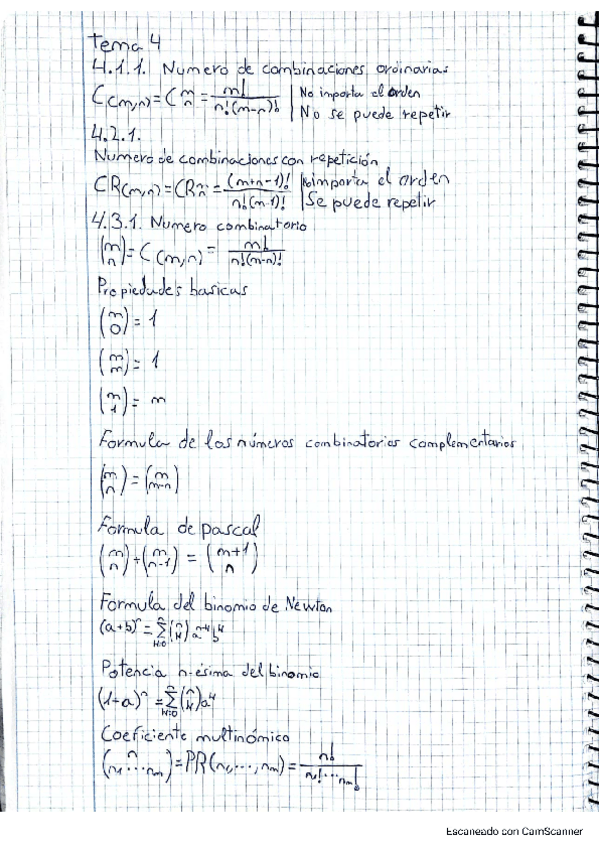 Tema 4
4.1.1. Numero de combinaciones ordinarias
C(m,n) = C m n = m! / n!(m-n)! | No importa el orden
No se puede repetir
4.2.1.
Numero de combinaciones con repetición
CR(m,n) = CR m n = (m+n-1)! / n!(m-1)! | No importa el orden
Se puede repetir
4.3.1. Numero combinatorio
(m n) = C(m,n) = m! / n!(m-n)!
Propiedades basicas
(m 0) = 1
(m m) = 1
(m 1) = m
Formula de los números combinatorios complementarios
(m n) = (m m-n)
Formula de pascal
(m n) + (m n-1) = (m+1 n)
Formula del binomio de Newton
(a+b)^n = Σ n k=0 (n k) a^n-k b^k
Potencia n-ésima del binomio
(1+a)^n = Σ n k=0 (n k) a^k
Coeficiente multinómico
(n n1...nm) = PR(n1,...,nm) = n! / n1!...nm!
Escaneado con CamScanner